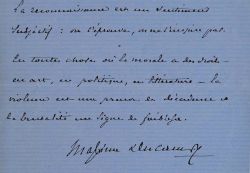 La reconnaissance est un sentiment
subjectif : on l'éprouve, on ne l'impose pas.
En toute chose où la morale a des droits –
en art, en politique, en littérature – la
violence est une preuve de décadence et
la brutalité un signe de faiblesse.
Maxime Du Camp